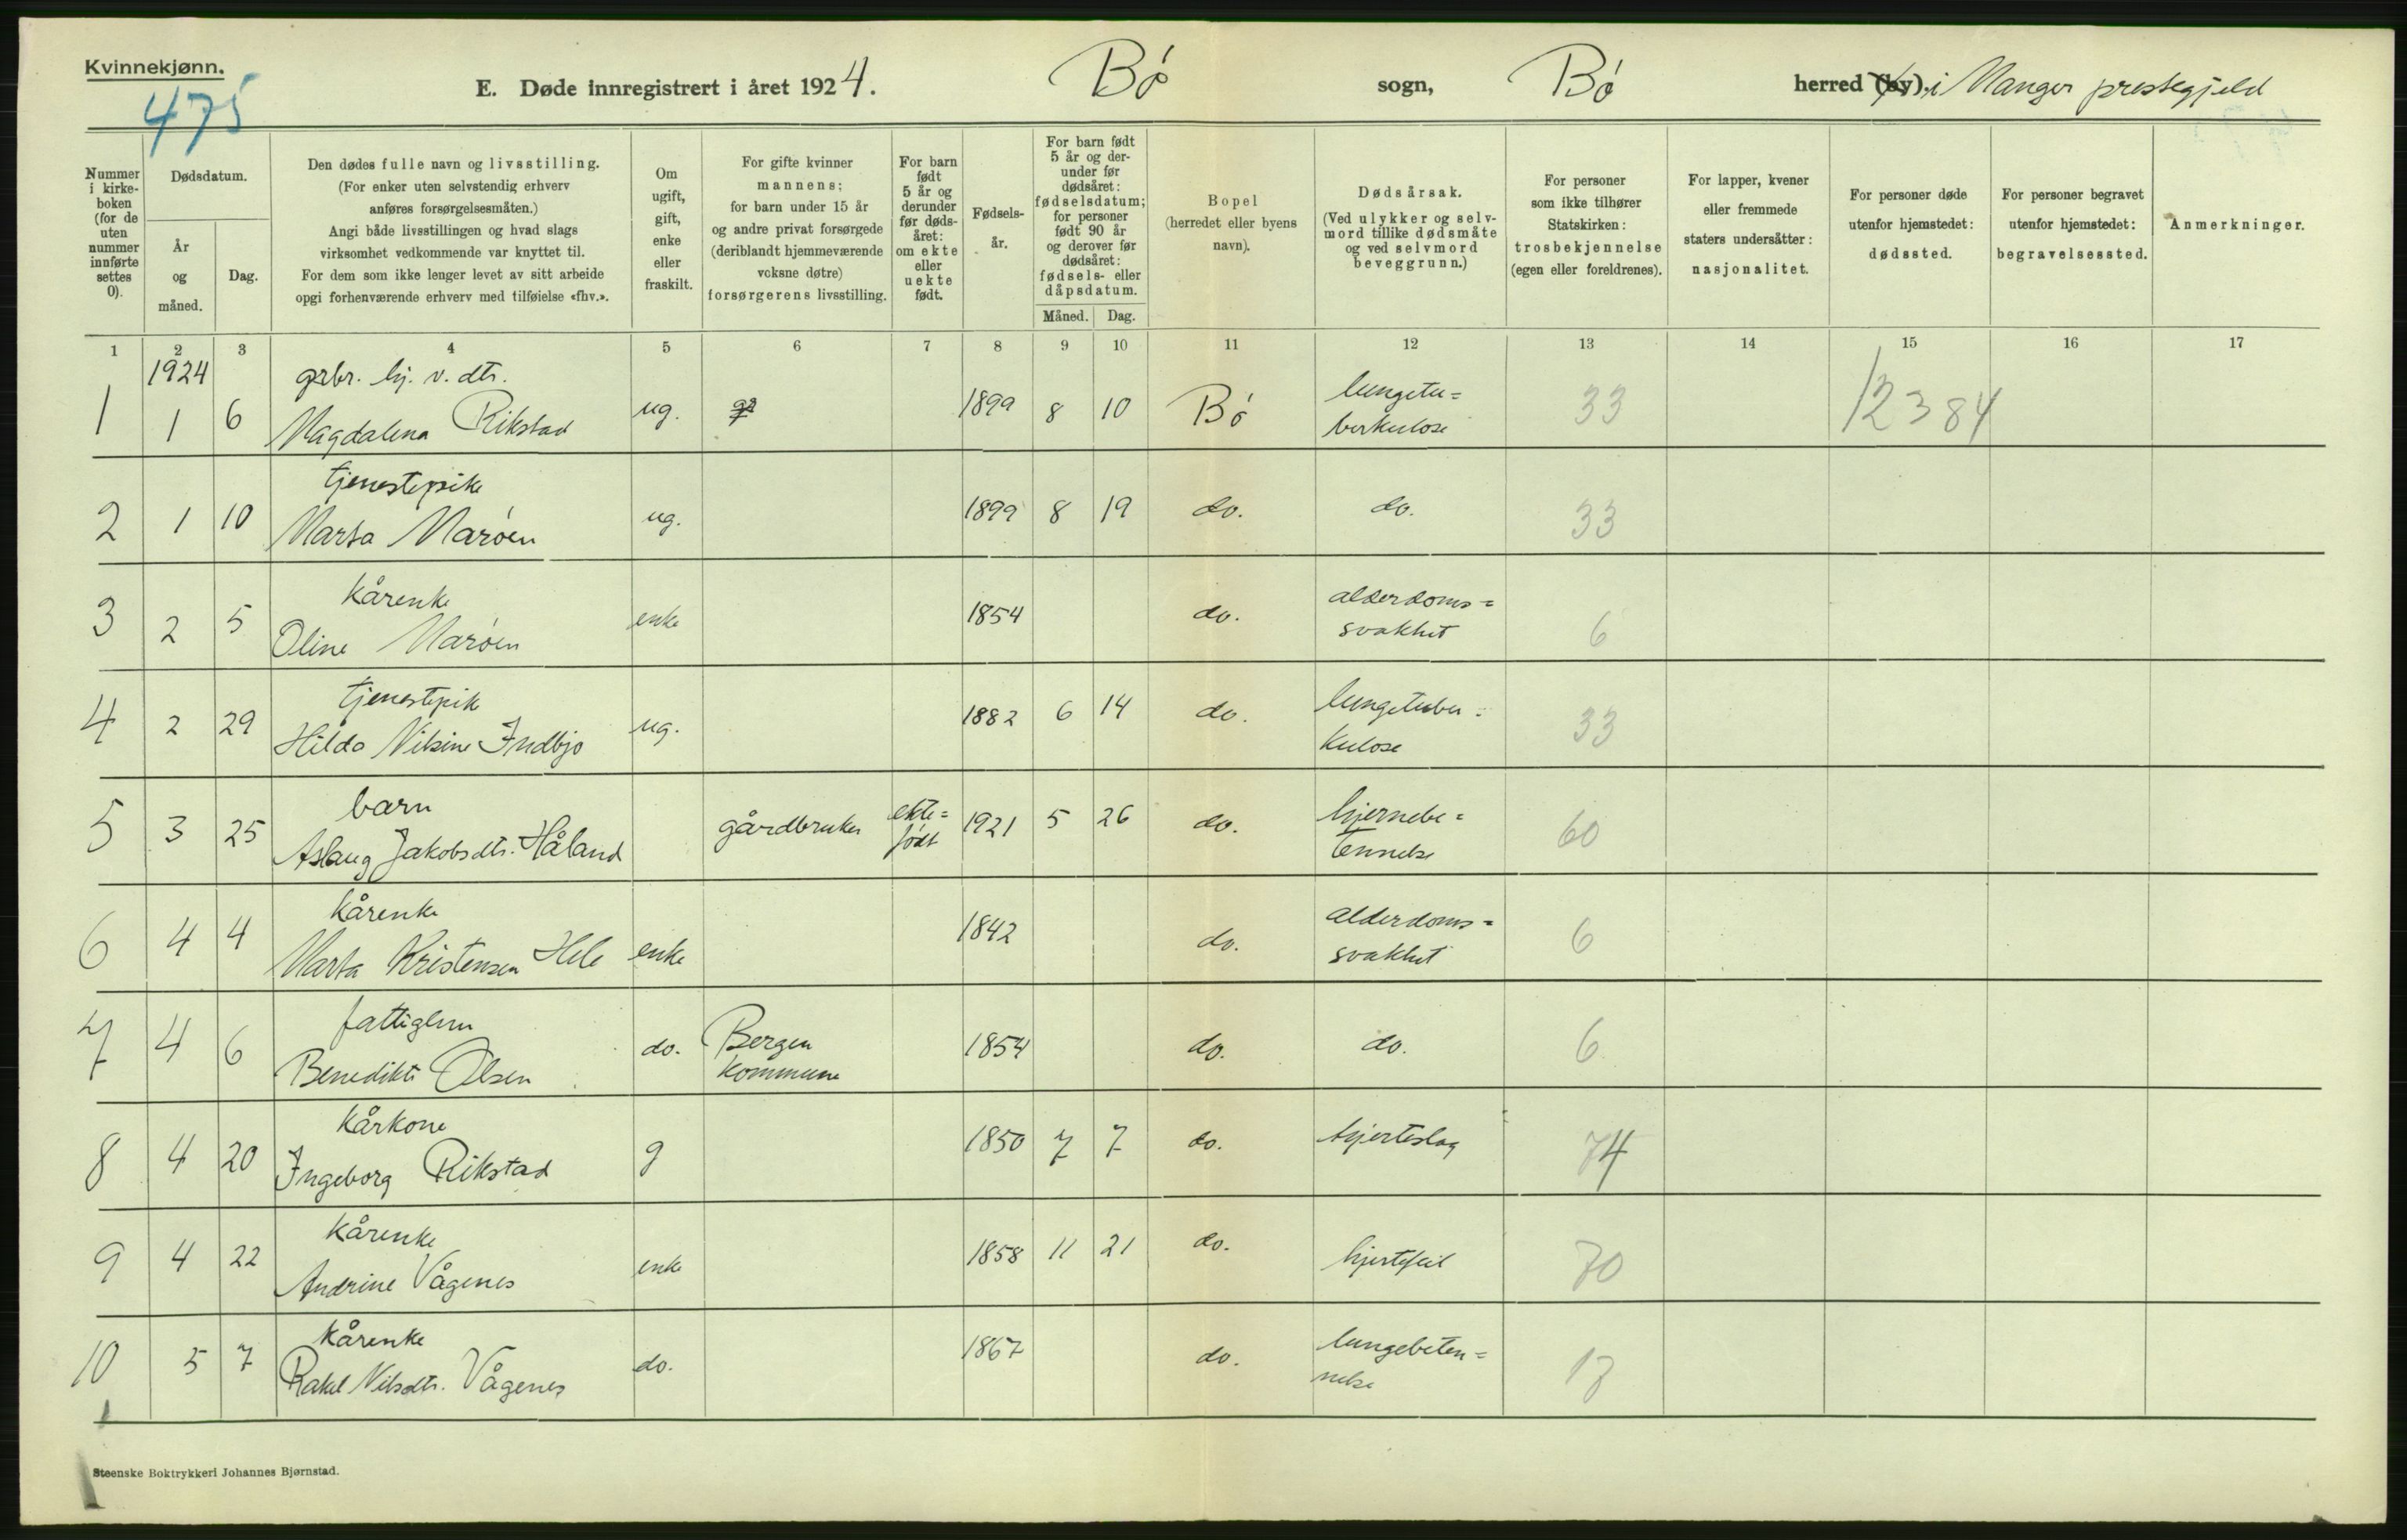 Kvinnekjønn.
475
E. Døde innregistrert i året 1924. Bø sogn, Bø herred (by). i Manger prestegjeld
Nummer i kirkeboken (for de uten nummer innførte settes 0).
Dødsdatum.
År og måned.
Dag.
Den dødes fulle navn og livsstilling.
(For enker uten selvstendig erhverv
anføres forsørgelsesmåten.)
Angi både livsstillingen og hvad slags
virksomhet vedkommende var knyttet til.
For dem som ikke lenger levet av sitt arbeide
opgi forhenværende erhverv med tilføielse «fhv.».
Om ugift, gift, enke eller fraskilt.
For gifte kvinner
mannens;
for barn under 15 år
og andre privat forsørgede
(deriblandt hjemmeværende
voksne døtre)
forsørgerens livsstilling.
For barn født 5 år og derunder før dødsåret: om ekte eller uekte født.
Fødselsår.
For barn født 5 år og derunder før dødsåret: fødselsdatum; for personer født 90 år og derover før dødsåret: fødsels- eller dåpsdatum.
Måned. Dag.
Bopel
(herredet eller byens navn).
Dødsårsak.
(Ved ulykker og selvmord tillike dødsmåte og ved selvmord beveggrunn.)
For personer
som ikke tilhører
Statskirken:
trosbekjennelse
(egen eller foreldrenes).
For lapper, kvener
eller fremmede
staters undersåtter:
nasjonalitet.
For personer døde
utenfor hjemstedet:
dødssted.
For personer begravet
utenfor hjemstedet:
begravelsessted.
Anmerkninger.
1 2 3 4 5 6 7 8 9 10 11 12 13 14 15 16 17
1924 grbr. hj. v. dtr.
1 1 6 Magdalena Rikstad ug. 1899 8 10 Bø lungetu=
berkulose 33 12384
tjenestepike
2 1 10 Marta Marøen ug. 1899 8 19 do. do. 33
kårenke
3 2 5 Oline Marøen enke 1854 do. alderdoms=
svakhet 6
tjenestepik
4 2 29 Hilda Nilsine Indbjo ug. 1882 6 14 do. lungetuber=
kulose 33
barn
5 3 25 Aslaug Jakobsdtr. Håland gårdbruker ekte=
født 1921 5 26 do. hjernebe=
tennelse 60
kårenke
6 4 4 Marta Kristensen Hele enke 1842 do. alderdoms=
svakhet 6
fattiglem
7 4 6 Benedikte Olsen do. Bergen
kommune 1854 do. do. 6
kårkone
8 4 20 Ingeborg Rikstad g 1850 7 7 do. hjerteslag 74
kårenke
9 4 22 Andrine Vågenes enke 1858 11 21 do. hjertefeil 70
kårenke
10 5 7 Rakel Nilsdtr. Vågenes do. 1867 do. lungebeten=
nelse 17
Steenske Boktrykkeri Johannes Bjørnstad.